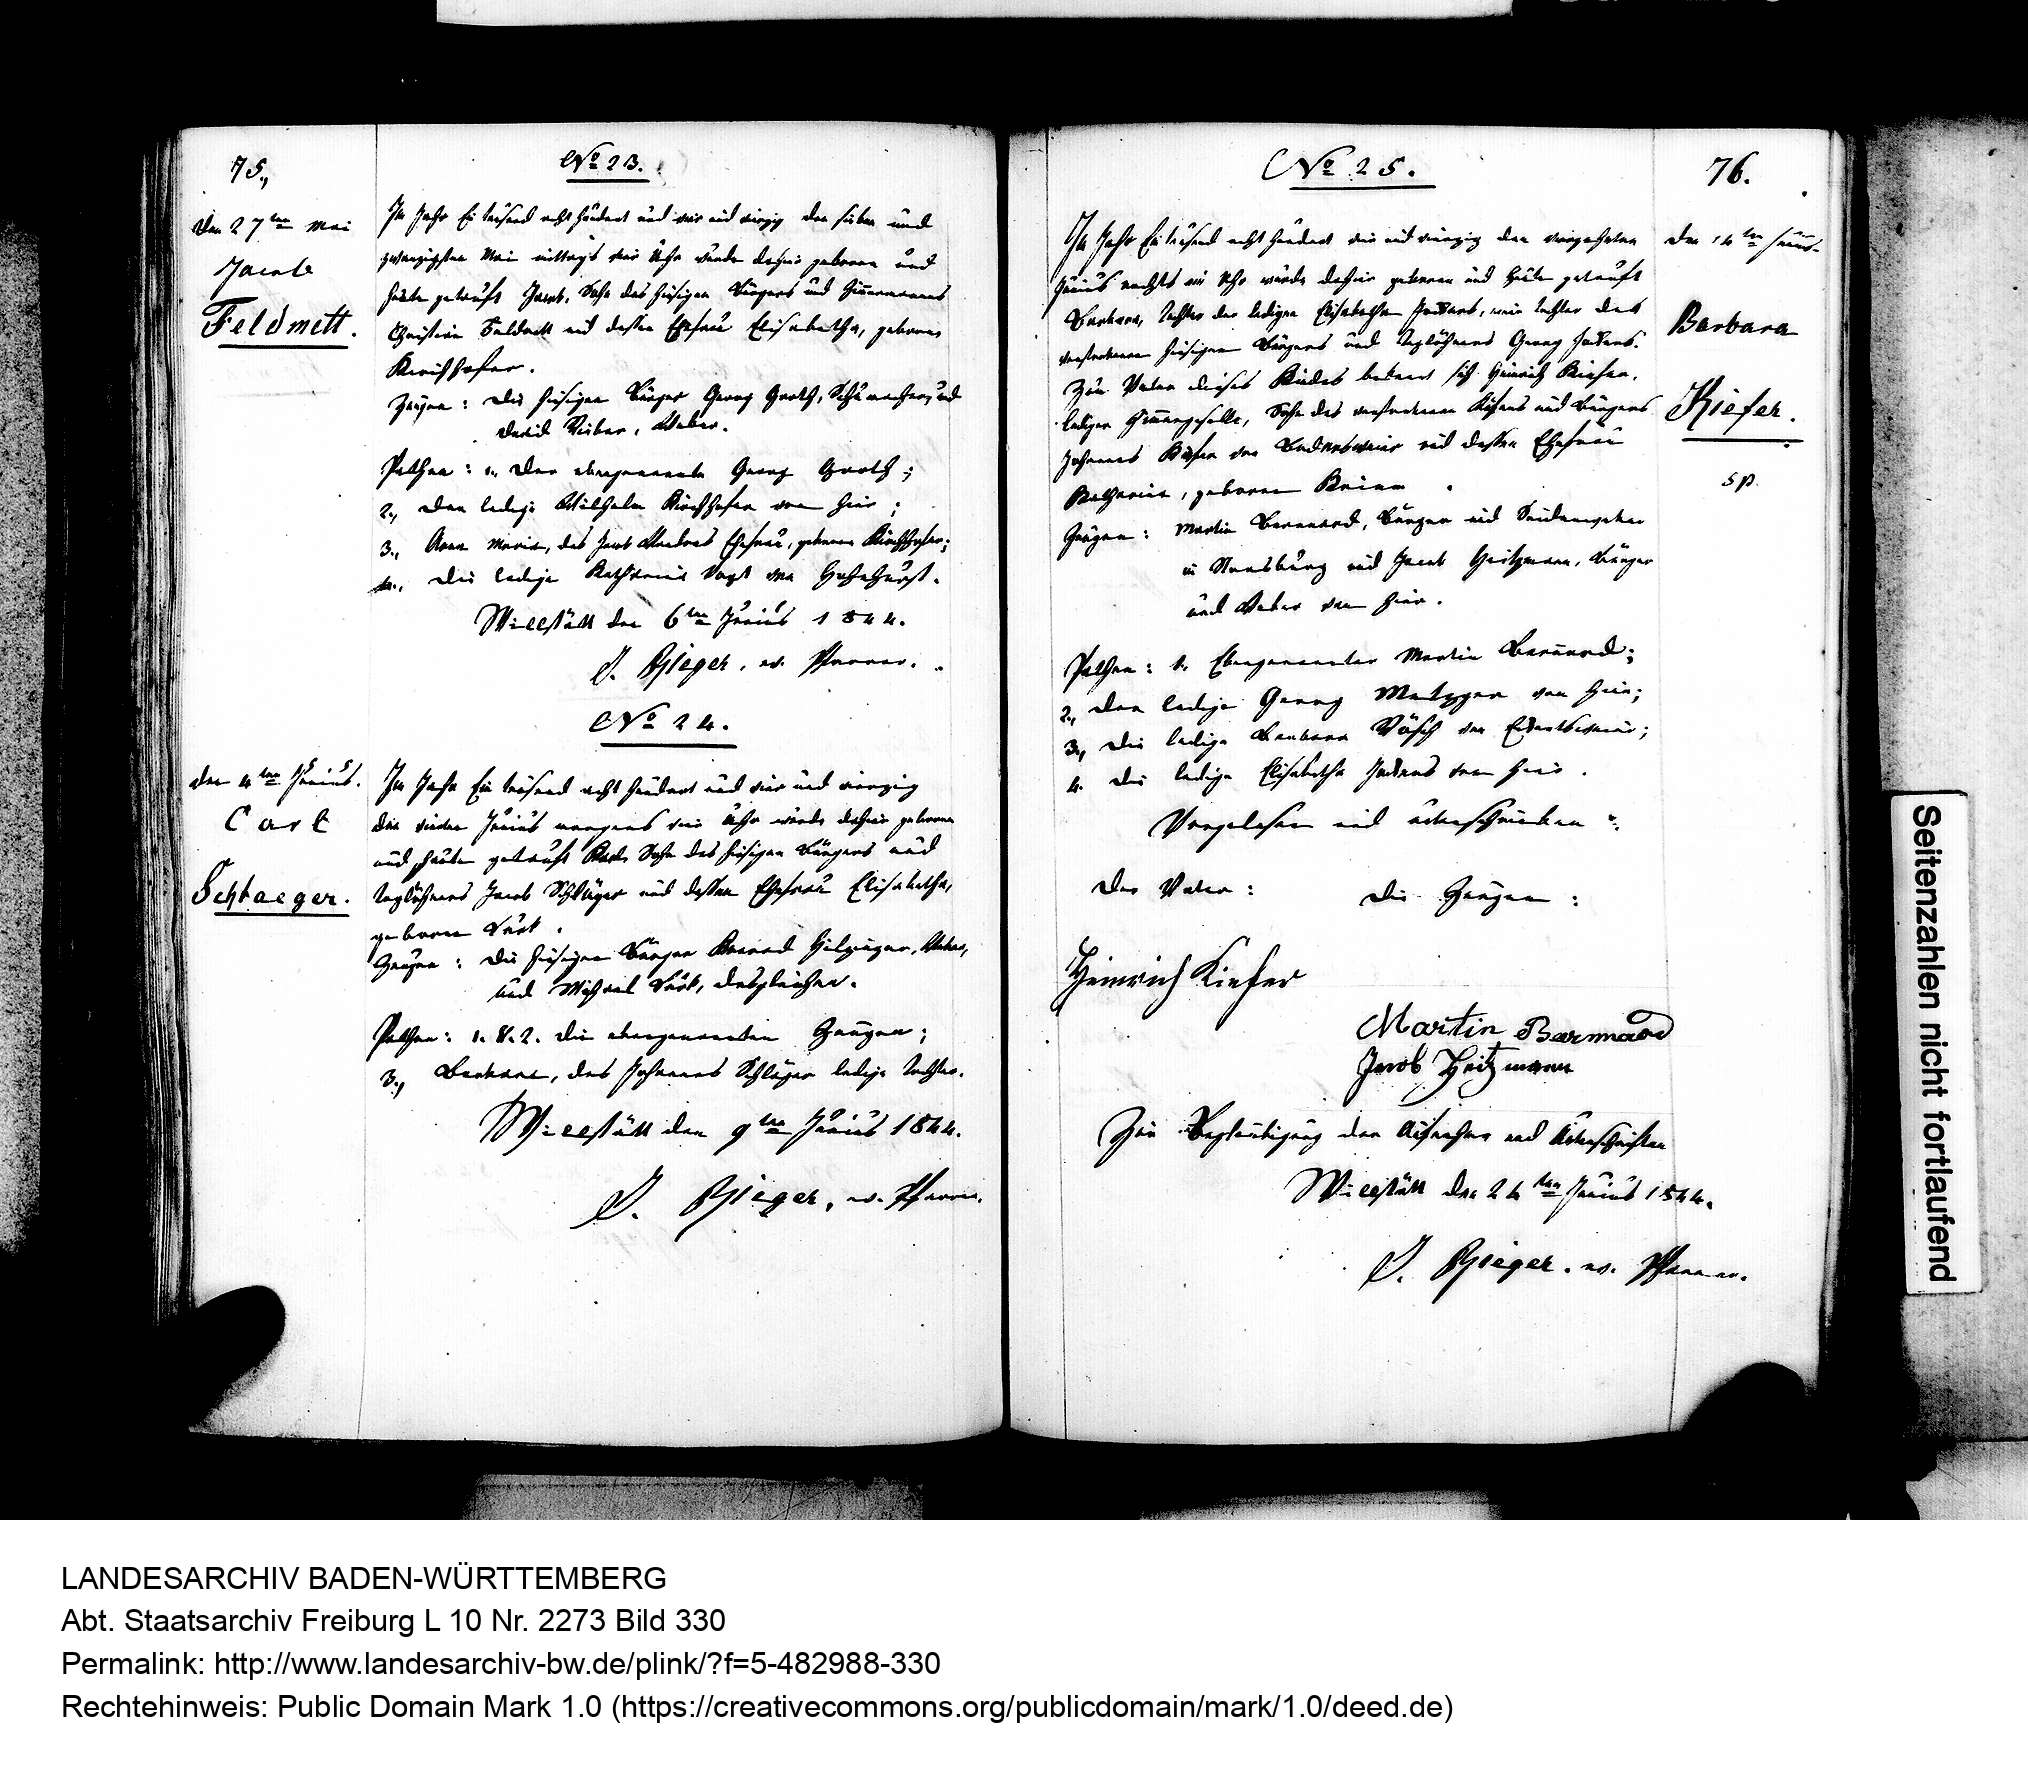 75.,
No 23.
den 27ten Mai
Jacob
Feldmett.
Im Jahr Ein tausend acht hundert und vier und vierzig den sieben und
zwanzigsten Mai mittags vier Uhr wurde dahier geboren und
heute getauft Jacob, Sohn des hiesigen Bürgers und Zimmermanns
Christian Feldmett und dessen Ehefrau Elisabetha, geborne
Kirchhofer.
Zeugen: die hiesigen Bürger Georg Groth, Schumacher, und
David Weber.
Pathen: 1. Der obengenannte Georg Groth;
2., Der ledige Wilhelm Kirchhofer von hier;
3., Anna Maria, des Jacob Ehefrau, geborne Kirchhofer;
4., Die ledige Katharina Vogt von Hohnhurst.
Willstätt den 6ten Junius 1844.
J. Rieger, ev. Pfarrer.
No 24.
den 4ten Junius.
Carl
Schlaeger.
Im Jahr Ein tausend acht hundert und vier und vierzig
den vierten Junius morgens vier Uhr wurde dahier geboren
und heute getauft Karl, Sohn des hiesigen Bürgers und
Taglöhners Jacob Schläger und dessen Ehefrau Elisabetha,
geborne
Zeugen: die hiesigen Bürger Konrad Hilzinger, Weber,
und Michael desgleichen.
Pathen: 1. & 2. die obengenannten Zeugen;
3., Barbara, des Johannes Schläger ledige Tochter.
Willstätt den 9ten Junius 1844.
J. Rieger, ev. Pfarrer.
No 25.
76.
den 14ten Junius
Barbara
Kiefer.
sp.
Im Jahr Ein tausend acht hundert vier und vierzig den vierzehnten
Junius nachts Uhr wurde dahier geboren und heute getauft
Barbara, Tochter der ledigen Elisabetha Tochter des
verstorbenen hiesigen Bürgers und Taglöhners Georg
Zum Vater dieses Kindes bekennt sich Heinrich Kiefer,
lediger Zimmergeselle, Sohn des verstorbenen Küfers und Bürgers
Johannes Kiefer von Bodersweier und dessen Ehefrau
Katharina, geborene
Zeugen: Martin Barnnard, Bürger und
in Strasburg und Jacob Heitzmann, Bürger
und Weber von hier.
Pathen: 1. Obengenannter Martin Barnnard;
2., Der ledige Georg Metzger von hier;
3., Die ledige Barbara Rösch von Eckartsweier;
4. Die ledige Elisabetha von hier.
Vorgelesen und unterschrieben
Der Vater:
Die Zeugen:
Heinrich Kiefer
Martin Barnnard
Jacob Heitzmann
Zur Beglaubigung der Aufnahme und Unterschriften
Willstätt den 24ten Junius 1844.
J. Rieger, ev. Pfarrer.
Seitenzahlen nicht fortlaufend
LANDESARCHIV BADEN-WÜRTTEMBERG
Abt. Staatsarchiv Freiburg L 10 Nr. 2273 Bild 330
Permalink: http://www.landesarchiv-bw.de/plink/?f=5-482988-330
Rechtehinweis: Public Domain Mark 1.0 (https://creativecommons.org/publicdomain/mark/1.0/deed.de)